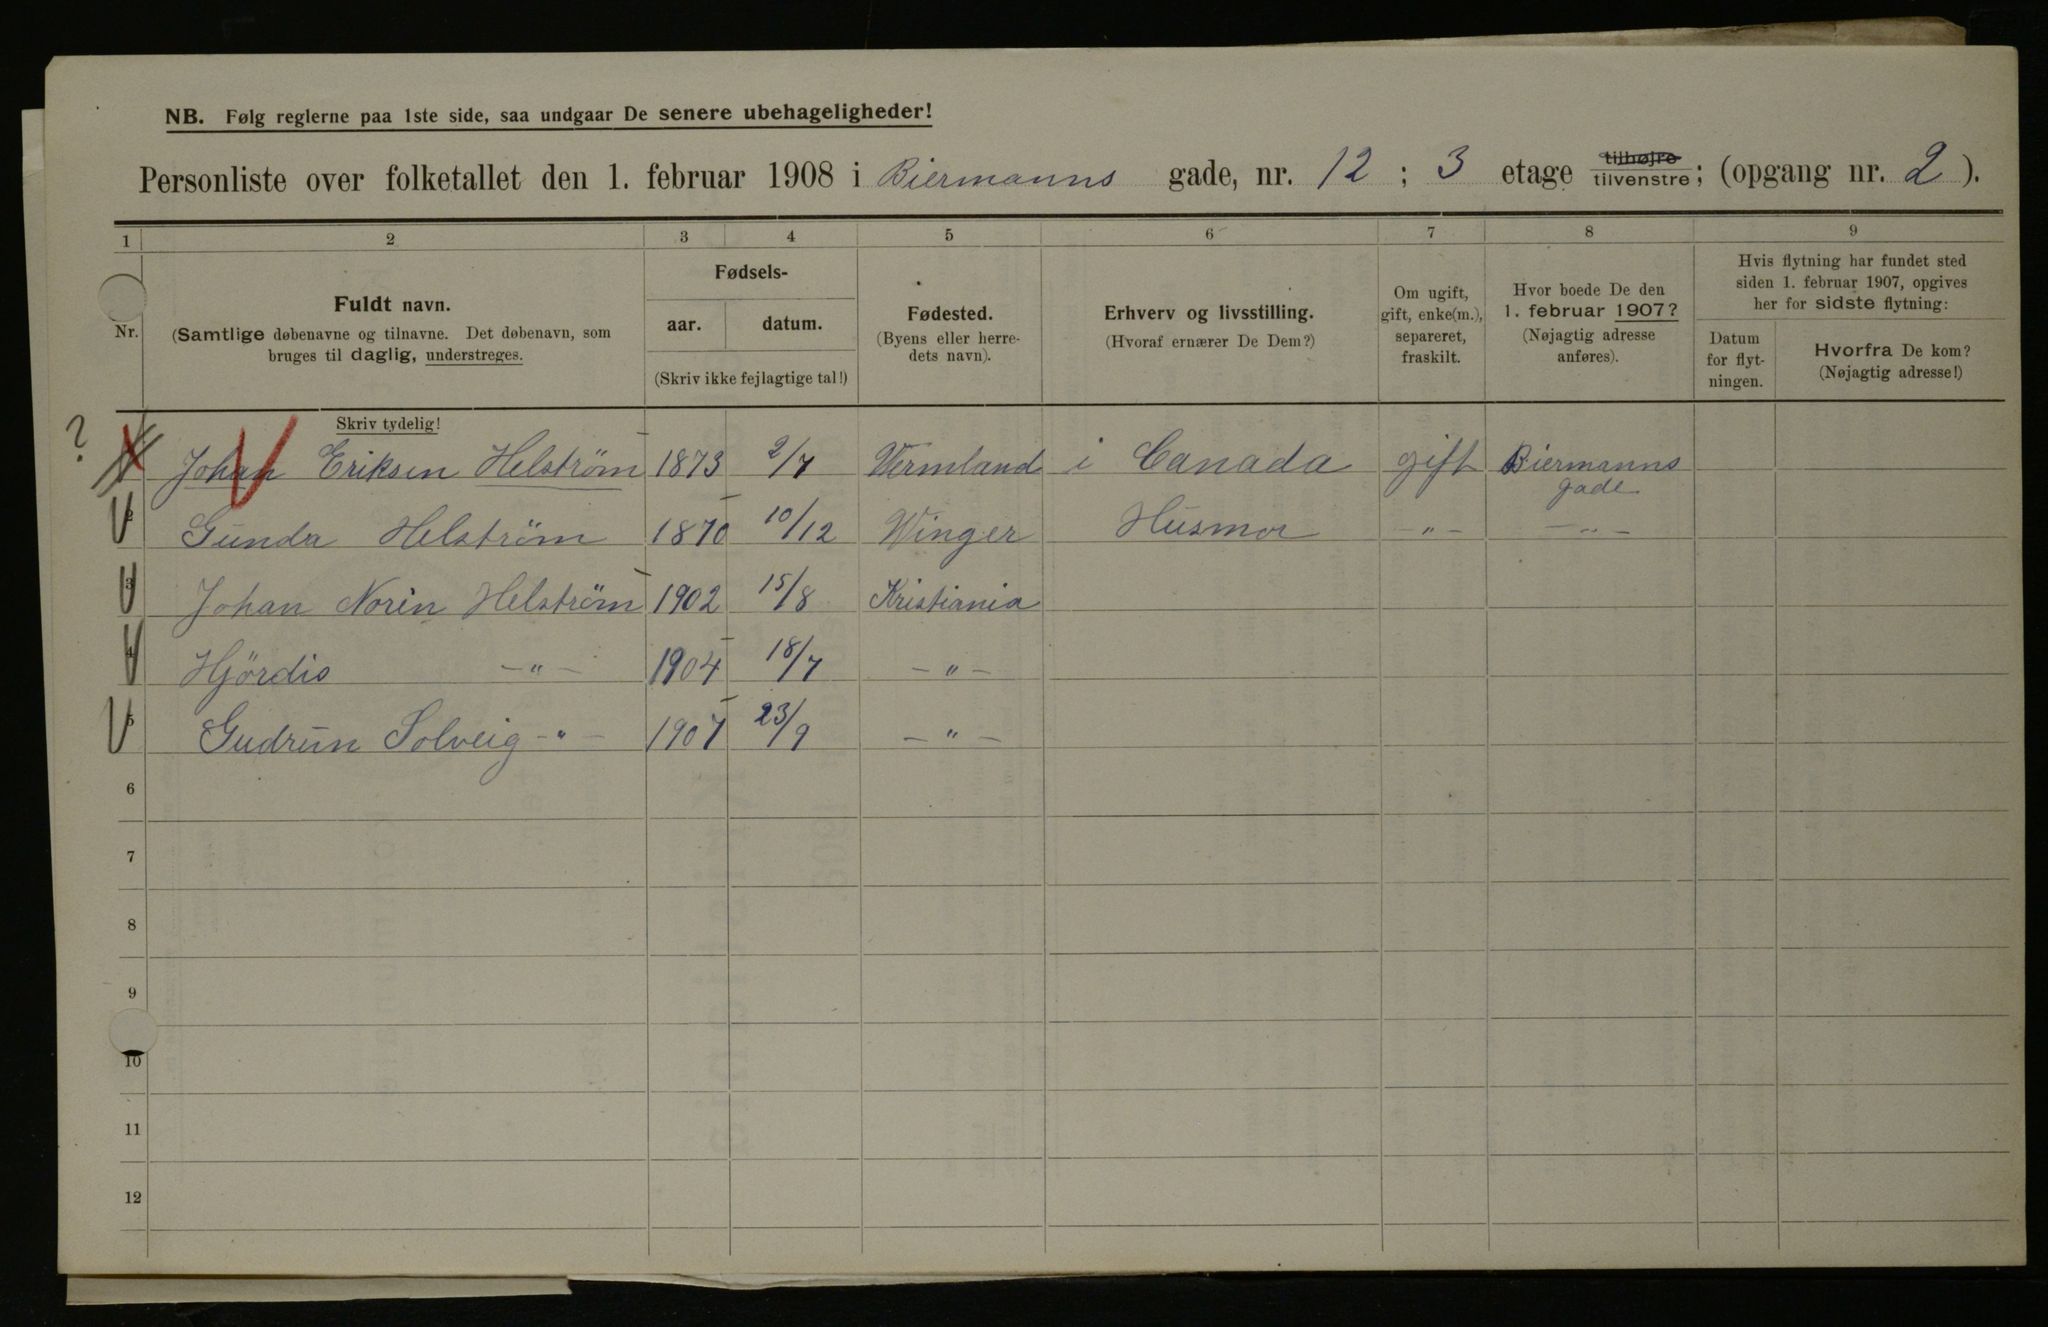 NB. Følg reglerne paa 1ste side, saa undgaar De senere ubehageligheder!
Personliste over folketallet den 1. februar 1908 i Biermanns gade, nr. 12 ; 3 etage tilhøjre tilvenstre; (opgang nr. 2 ).
1 2 3 4 5 6 7 8 9
Nr.
Fuldt navn.
(Samtlige døbenavne og tilnavne. Det døbenavn, som
bruges til daglig, understreges.
Skriv tydelig!
Fødsels-
aar. datum.
(Skriv ikke fejlagtige tal!)
Fødested.
(Byens eller herre-
dets navn).
Erhverv og livsstilling.
(Hvoraf ernærer De Dem?)
Om ugift,
gift, enke(m.),
separeret,
fraskilt.
Hvor boede De den
1. februar 1907?
(Nøjagtig adresse
anføres).
Hvis flytning har fundet sted
siden 1. februar 1907, opgives
her for sidste flytning:
Datum
for flyt-
ningen.
Hvorfra De kom?
(Nøjagtig adresse!)
? Johan Eriksen Helström 1873 2/7 Wermland i Canada gift Biermanns
gade
2 Gunda Helström 1870 10/12 Winger Husmor -"- -"-
3 Johan Norin Helström 1902 15/8 Kristiania
4 Hjördis -"- 1904 18/7 -"-
5 Gudrun Solveig -"- 1907 23/9 -"-
6
7
8
9
10
11
12